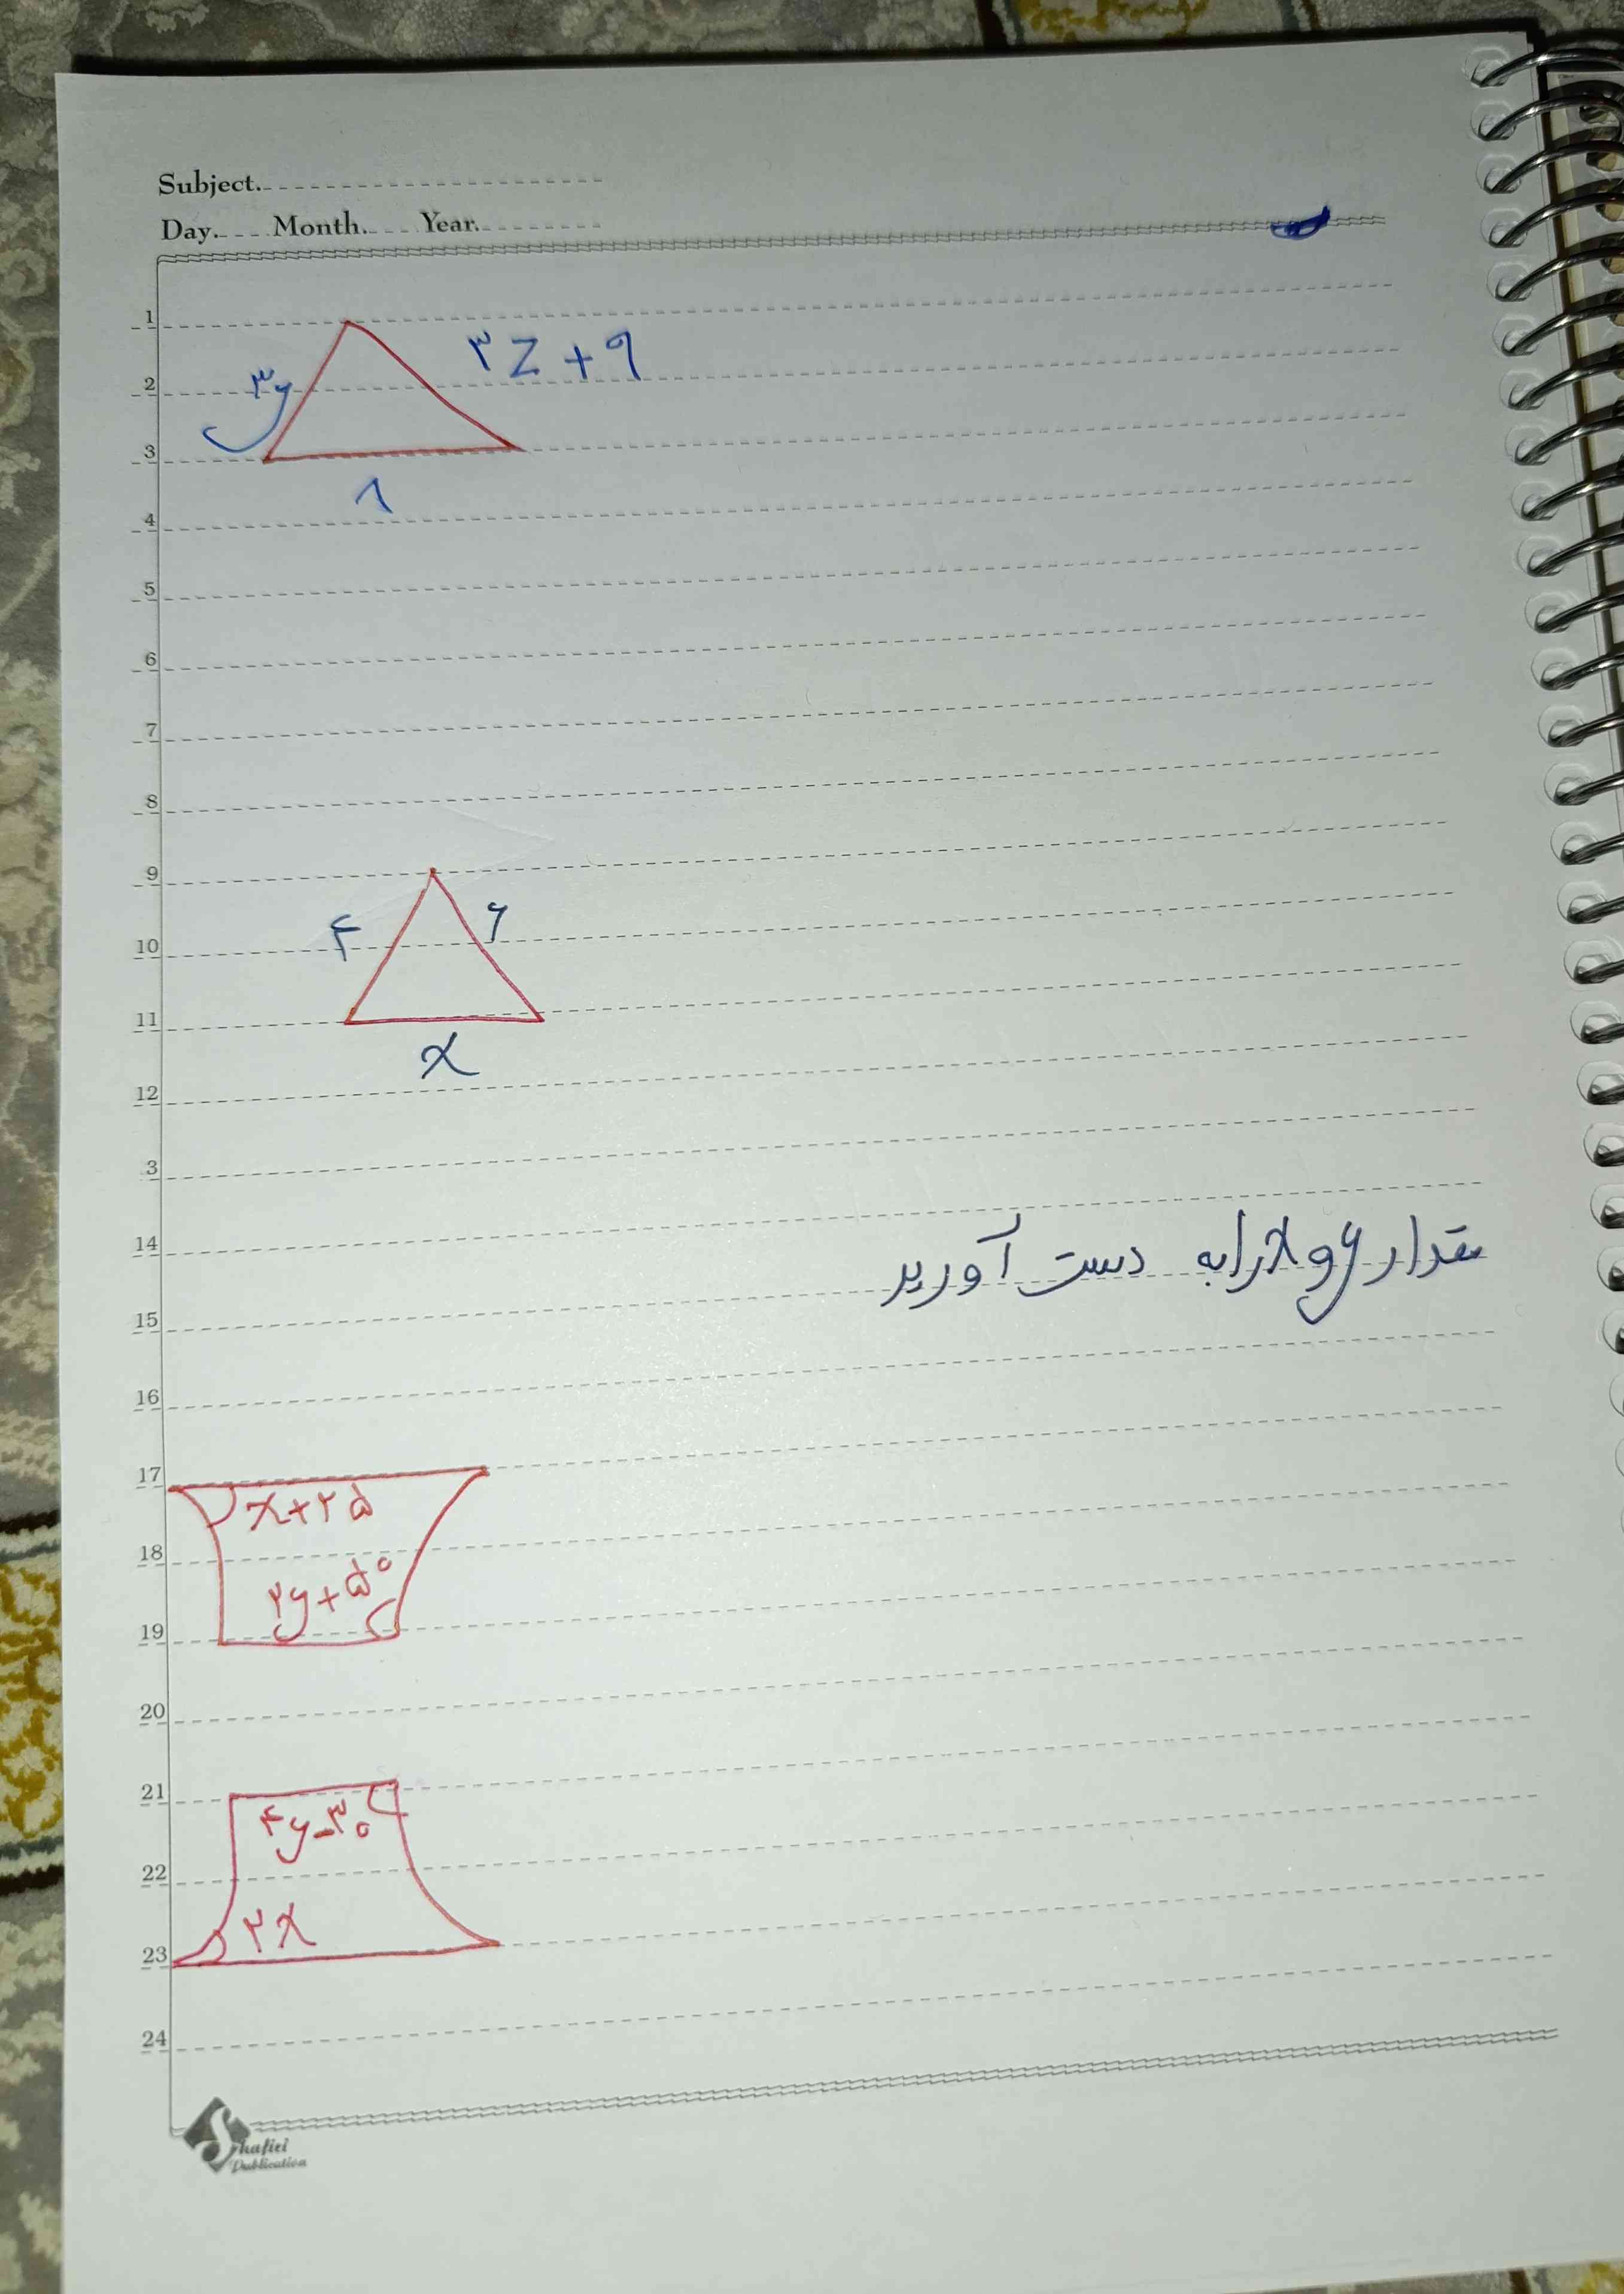 Subject.
Day. Month. Year.
1
۳z + ۹
2
۳y
3
۸
4
5
6
7
8
9
۴
۶
10
11
x
12
3
14
مقدار y و x را به دست آورید
15
16
17
x+۲۵
18
۲y+۵°
19
20
21
۴y-۳۰
22
۲x
23
24
Shafiei
Publication